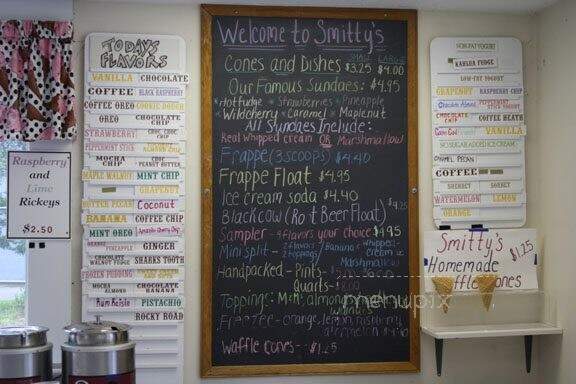 TODAYS
FLAVORS
VANILLA CHOCOLATE
COFFEE BLACK RASPBERRY
COFFEE OREO COOKIE DOUGH
OREO CHOCOLATE CHIP
STRAWBERRY CHOC. CHOC. CHIP
PEPPERMINT STICK ALMOND CHIP
MOCHA CHIP CHOC. PEANUT BUTTER
MAPLE WALNUT MINT CHIP
GRAPENUT
BUTTER PECAN Coconut
BANANA COFFEE CHIP
MINT OREO
PINEAPPLE GINGER
CHOCOLATE WALNUT FUDGE SHARKS TOOTH
FROZEN PUDDING
MOCHA ALMOND CHOCOLATE BANANA
Rum Raisin PISTACHIO
ROCKY ROAD
Raspberry
and
Lime
Rickeys
$2.50
Welcome to Smitty's
SMALL LARGE
Cones and Dishes $3.25 $4.00
Our Famous Sundaes: $4.95
Hot fudge * Strawberries * Pineapple
* Wildcherry * Caramel * Maplenut
All Sundaes Include:
Real whipped cream OR Marshmallow
Frappe (3 scoops) $4.40
Frappe Float $4.95
Ice cream soda $4.40
Black cow (Root Beer Float) $4.25
Sampler - 4 flavors your choice $4.95
Mini split - 2 flavors / 2 toppings / Banana & whipped-cream or Marshmallow
Handpacked - Pints-
Quarts- $8.00
Toppings: M+M, almond
walnuts
Freezee - orange, lemon, raspberry,
Waffle cones -- $1.25
NON-FAT YOGURT
KAHLUA FUDGE
LOW-FAT YOGURT
GRAPENUT RASPBERRY
Chocolate Almond
CHOCOLATE CHIP COFFEE HEATH
VANILLA
NO SUGAR ADDED ICE CREAM
CARAMEL PECAN
COFFEE
SHERBET SORBET
WATERMELON LEMON
ORANGE
Smitty's $1.25
Homemade
Waffle Cones
menupix